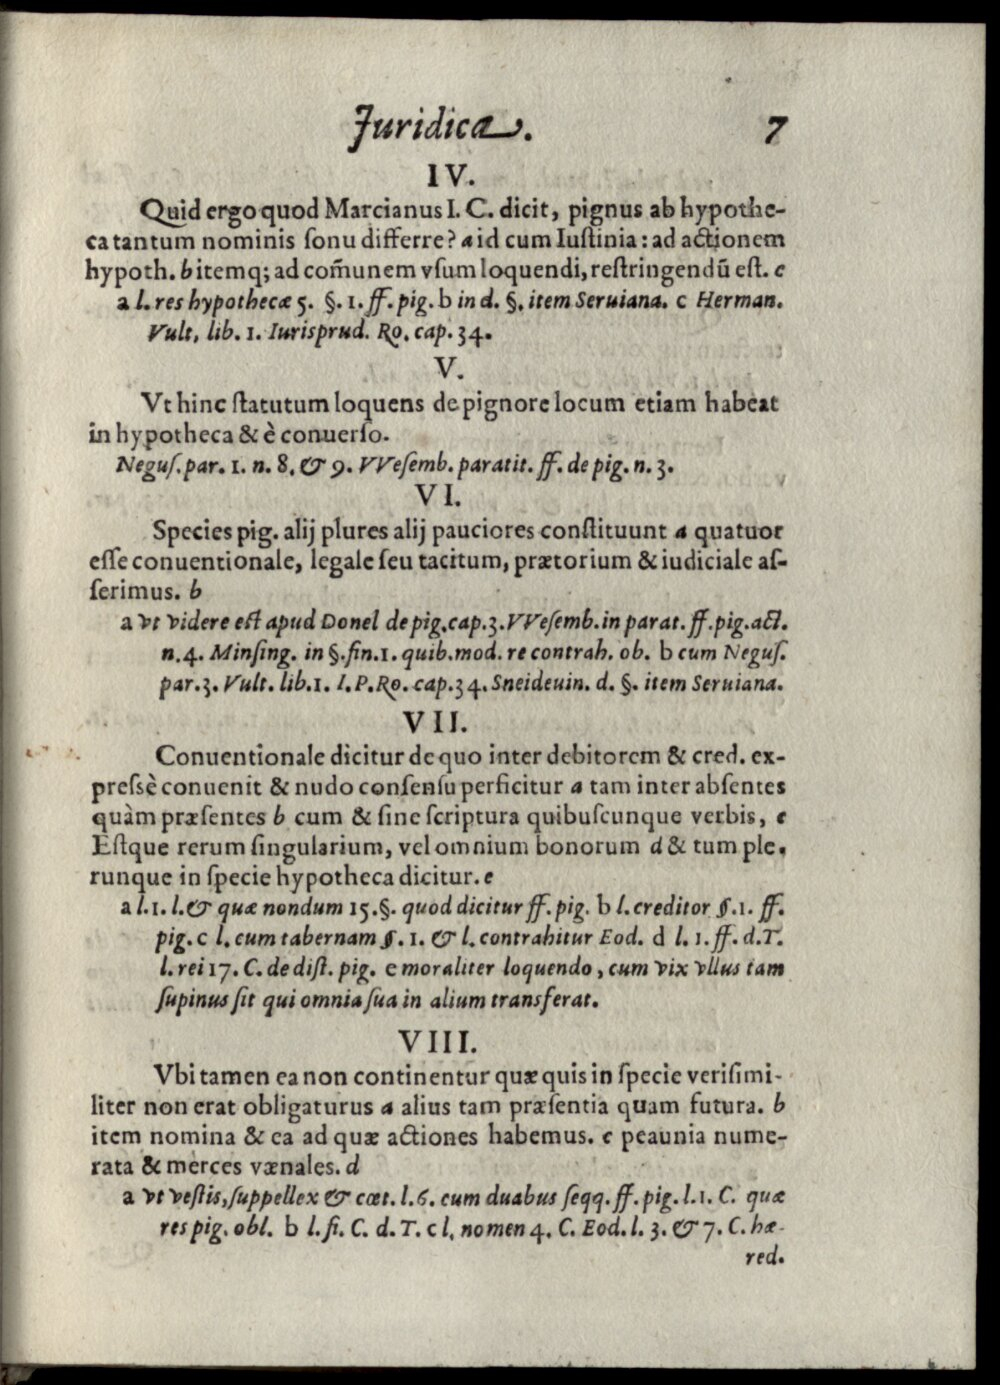 Juridica. 7
IV.
Quid ergo quod Marcianus I. C. dicit, pignus ab hypothe-
ca tantum nominis ſonu differre? a id cum Iuſtinia: ad actionem
hypoth. b itemq; ad com̃unem vſum loquendi, reſtringendũ eſt. c
a l. res hypothecæ 5. §. 1. ff. pig. b in d. §. item Seruiana. c Herman.
Vult, lib. 1. Iurisprud. Ro. cap. 34.
V.
Vt hinc ſtatutum loquens de pignore locum etiam habeat
in hypotheca & è conuerſo.
Neguſ. par. 1. n. 8. & 9. VVeſemb. paratit. ff. de pig. n. 3.
VI.
Species pig. alij plures alij pauciores conſtituunt a quatuor
eſſe conuentionale, legale ſeu tacitum, prætorium & iudiciale aſ-
ſerimus. b
a vt videre eſt apud Donel de pig. cap. 3. VVeſemb. in parat. ff. pig. act.
n. 4. Minſing. in §. fin. 1. quib. mod. re contrah. ob. b cum Neguſ.
par. 3. Vult. lib. 1. I. P. Ro. cap. 34. Sneideuin. d. §. item Seruiana.
VII.
Conuentionale dicitur de quo inter debitorem & cred. ex-
preſsè conuenit & nudo conſenſu perficitur a tam inter abſentes
quàm præſentes b cum & ſine ſcriptura quibuſcunque verbis, c
Eſtque rerum ſingularium, vel omnium bonorum d & tum ple.
runque in ſpecie hypotheca dicitur. e
a l. 1. l. & quæ nondum 15. §. quod dicitur ff. pig. b l. creditor §. 1. ff.
pig. c l. cum tabernam §. 1. & l. contrahitur Eod. d l. 1. ff. d. T.
l. rei 17. C. de diſt. pig. e moraliter loquendo, cum vix vllus tam
ſupinus ſit qui omnia ſua in alium transferat.
VIII.
Vbi tamen ea non continentur quæ quis in ſpecie veriſimi-
liter non erat obligaturus a alius tam præſentia quam futura. b
item nomina & ea ad quæ actiones habemus. c peaunia nume-
rata & merces vænales. d
a vt veſtis, ſuppellex & cœt. l. 6. cum duabus ſeqq. ff. pig. l. 1. C. quæ
res pig. obl. b l. fi. C. d. T. c l, nomen 4. C. Eod. l. 3. & 7. C. hæ-
red.